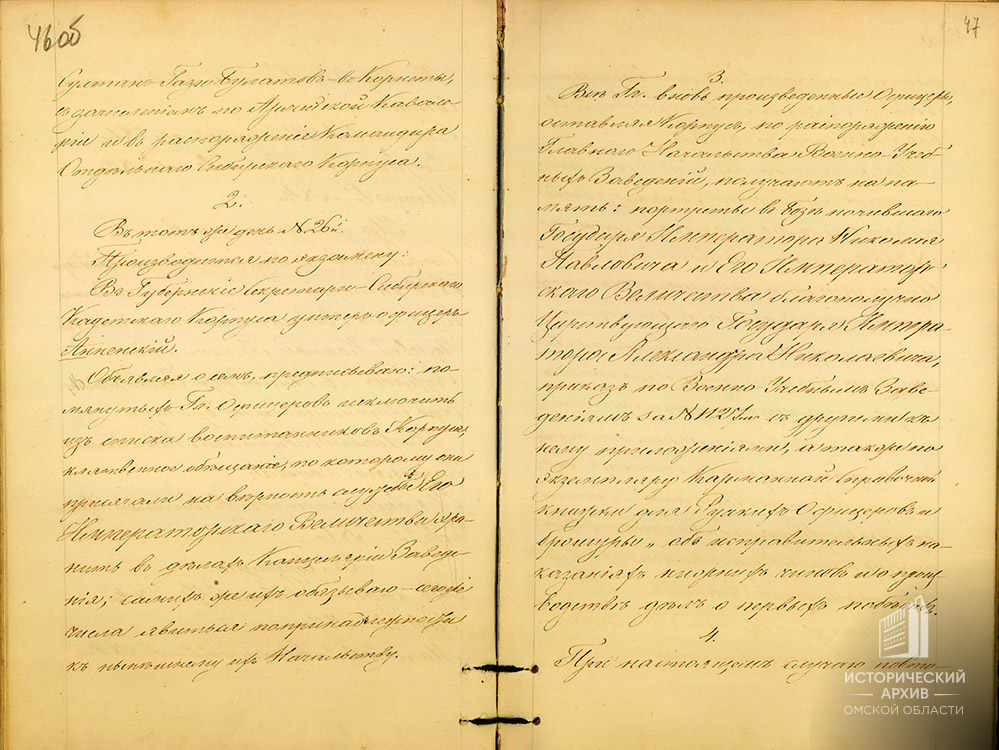 46об
Султанъ Гази Булатовъ – въ Корнеты,
съ зачисленiемъ по Армейской Кавале-
рiи и въ распоряженiе Командира
Отдѣльнаго Сибирскаго Корпуса.
2.
Въ тотъ же день № 26й.
Производится по экзамену:
Въ Губернскiе Секретари – Сибирскаго
Кадетскаго Корпуса унтеръ-офицеръ
Анненскiй.
Объявляя о семъ, предписываю: по-
мянутыхъ Гг. Офицеровъ исключить
изъ списка воспитанниковъ Корпуса,
клятвенное обѣщанiе, по которому они
присягали на вѣрность службѣ Его
Императорскаго Величества, хра-
нить въ дѣлахъ Канцелярiи Заведе-
нiя; самихъ же ихъ обязываю – сего
числа явиться по принадлежности
къ нынѣшнему ихъ Начальству.
47
3.
Всѣ Гг. вновь произведенные Офицеры,
оставляя Корпусъ, по распоряженiю
Главнаго Начальства Военно-Учеб-
ныхъ Заведенiй, получаютъ на па-
мять: портреты въ Бозѣ почившаго
Государя Императора Николая
Павловича и Его Император-
скаго Величества благополучно
Царствующаго Государя Импера-
тора, Александра Николаевича,
приказъ по Военно-Учебнымъ Заве-
денiямъ за № 1127м съ другими къ
нему приложенiями, а также по
экземпляру Карманной справочной
книжки для Русскихъ Офицеровъ и
брошюры „объ исправительныхъ на-
казанiяхъ нижнихъ чиновъ и о произ-
водствѣ дѣлъ о первыхъ побѣгахъ.
4.
При настоящемъ случаѣ повто-
ИСТОРИЧЕСКИЙ
АРХИВ
ОМСКОЙ ОБЛАСТИ